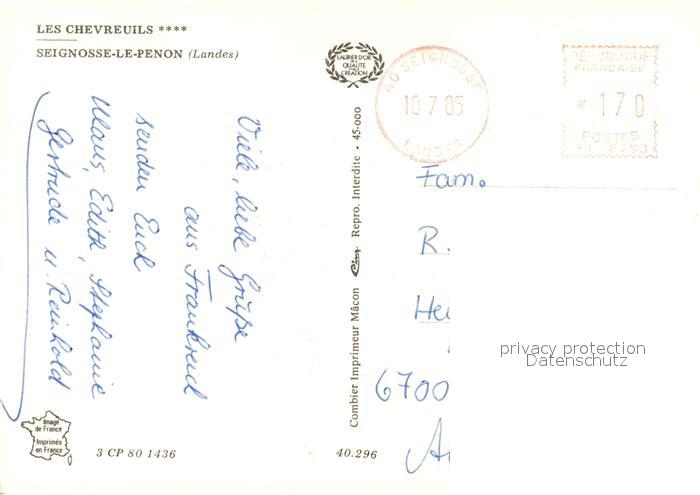 LES CHEVREUILS ****
SEIGNOSSE-LE-PENON (Landes)
Viele, liebe Grüße
aus Frankreich
senden Euch
Klaus, Edith, Stephanie
Gertrude u. Reinhold
Image
de France
Imprimés
en France
3 CP 80 1436
40.296
Combier Imprimeur Mâcon Cim Repro. Interdite - 45-000
LAURIER D'OR
DE LA
QUALITÉ
CRÉATION
40 SEIGNOSSE
10 7 85
LANDES
RÉPUBLIQUE
FRANÇAISE
* 170
POSTES
Fam.
R.
He
6700
privacy protection
Datenschutz